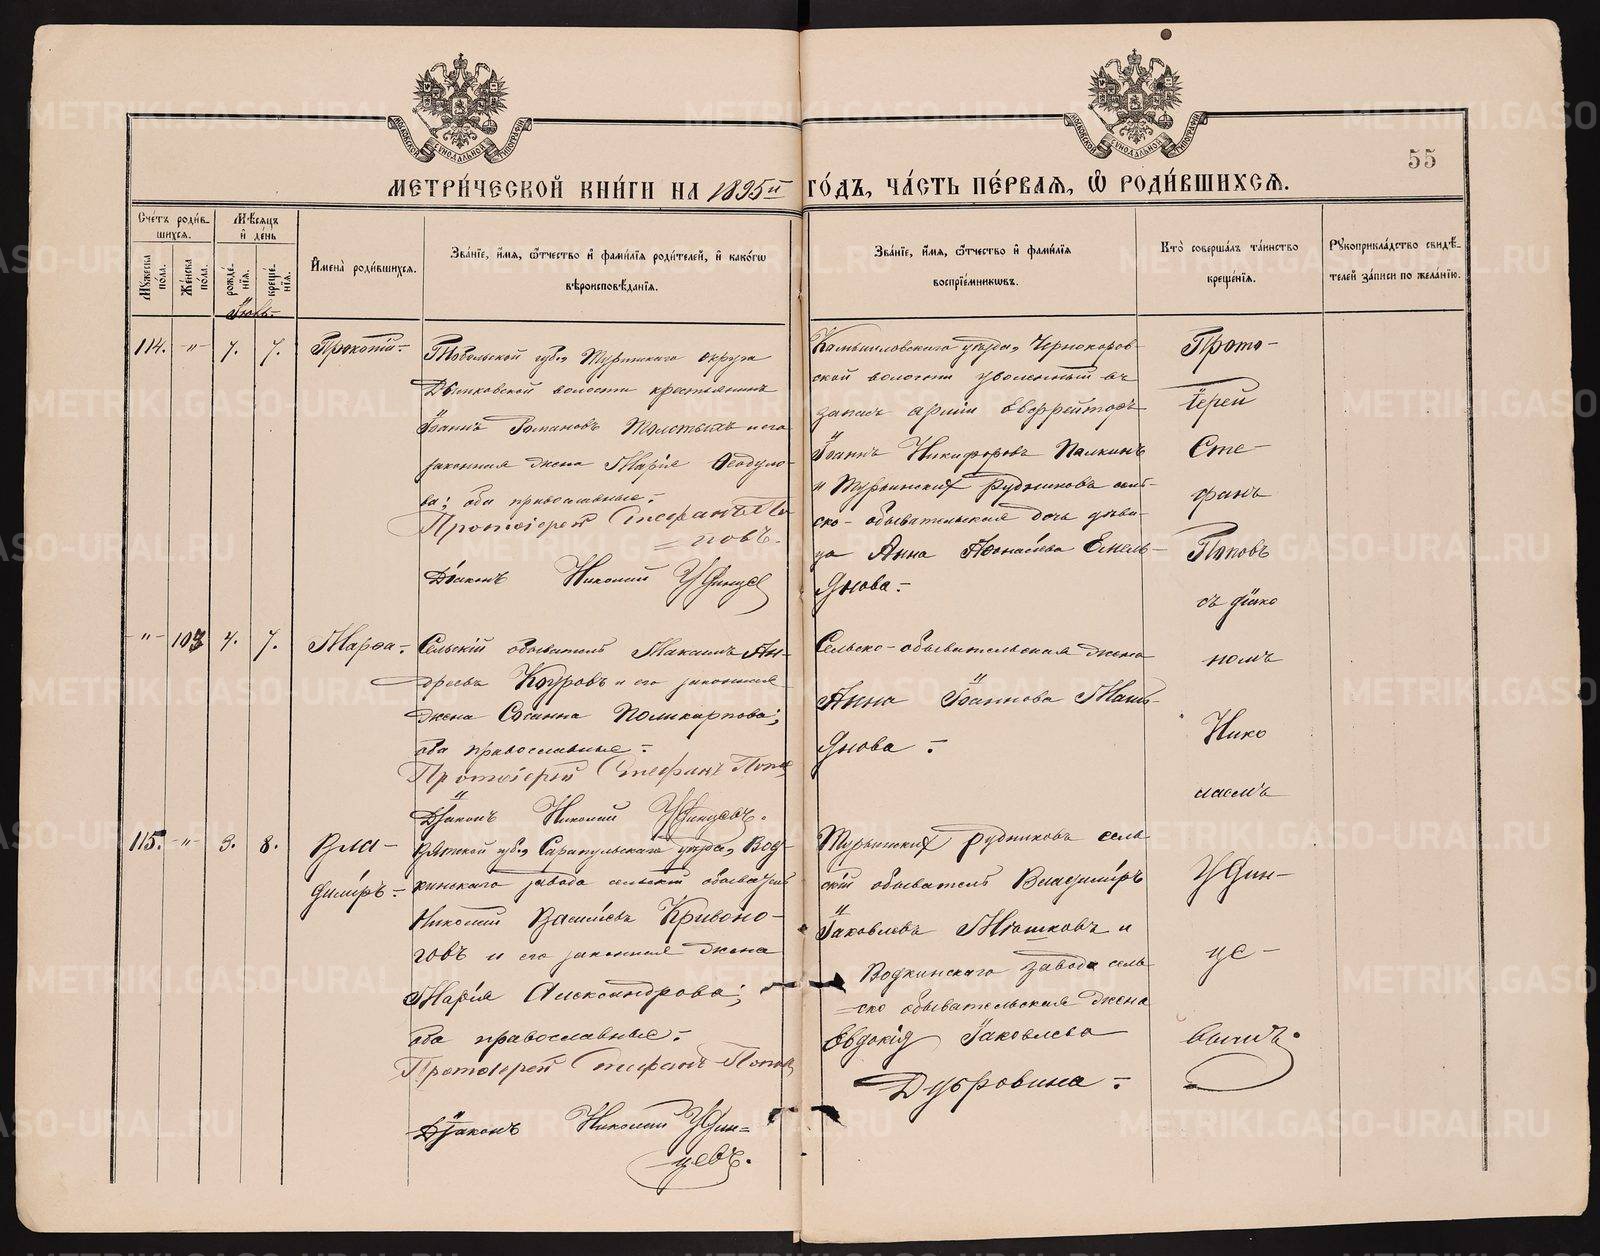 55
МЕТРИ́ЧЕСКОЙ КНИ́ГИ НА 1895й ГО́ДЪ, ЧА́СТЬ ПЕ́РВАѦ, Ѡ РОДИ́ВШИХСѦ.
Сче́тъ роди́вшихсѧ.
Мꙋжеска пола.
Же́нска пола.
Мѣ́сѧцъ и҆ де́нь
рожде́нїѧ.
креще́нїѧ.
И҆мена̀ роди́вшихсѧ.
Зва́нїе, и҆́мѧ, ѻ҆́тчество и҆ фамилїѧ роди́телей, и҆ како́гѡ вѣроисповѣ́данїѧ.
Зва́нїе, и҆́мѧ, ѻ҆́тчество и҆ фами́лїѧ воспрїе́мникѡвъ.
Кто̀ соверша́лъ та́инство креще́нїѧ.
Рꙋкоприкла́дство свидѣ́телей за́писи по жела́нїю.
Іюль
114. -"- 7. 7. Прокопій
Тобольской губ., Туринскаго округа
волости крестьянинъ
Іоаннъ Романовъ Толстыхъ и его
законная жена Марія Ѳеодуло-
ва; оба православные.
Протоіерей Стефанъ По-
повъ.
Діаконъ Николай Удинцев
Камышловскаго уѣзда, Черноկоров-
ской волости уволенный въ
запасъ арміи Ефрейторъ
Іоаннъ Никифоровъ Палкинъ
и Турьинскихъ рудниковъ сель-
ско-обывательская дочь дѣви-
ца Анна Аѳонасіева Емель-
янова.
Прото-
іерей
Сте-
фанъ
Поповъ
съ діако
номъ
Нико
лаемъ
Удин-
це-
вымъ.
-"- 103 4. 7. Марѳа
Сельскій обыватель Максимъ Ан-
дреевъ и его законная
жена Сосанна Поликарпова;
оба православные.
Протоіерей Стефанъ Попов
Діаконъ Николай Удинцевъ.
Сельско-обывательская жена
Анна Іоаннова
янова.
115. -"- 3. 8. Вла-
диміръ
Вятской губ., Сарапульскаго уѣзда, Вод-
кинскаго завода сельскій обыватель
Николай Василіевъ Кривоно-
говъ и его законная жена
Марія Александрова;
оба православные.
Протоіерей Стефанъ Попов
Діаконъ Николай Удин=
цевъ.
Турьинскихъ рудниковъ сель
скій обыватель Владиміръ
Іаковлевъ Мюшковъ и
Водкинскаго завода сель
ско обывательская жена
Евдокія Іаковлева
Дубровина.
METRIKI.GASO-URAL.RU